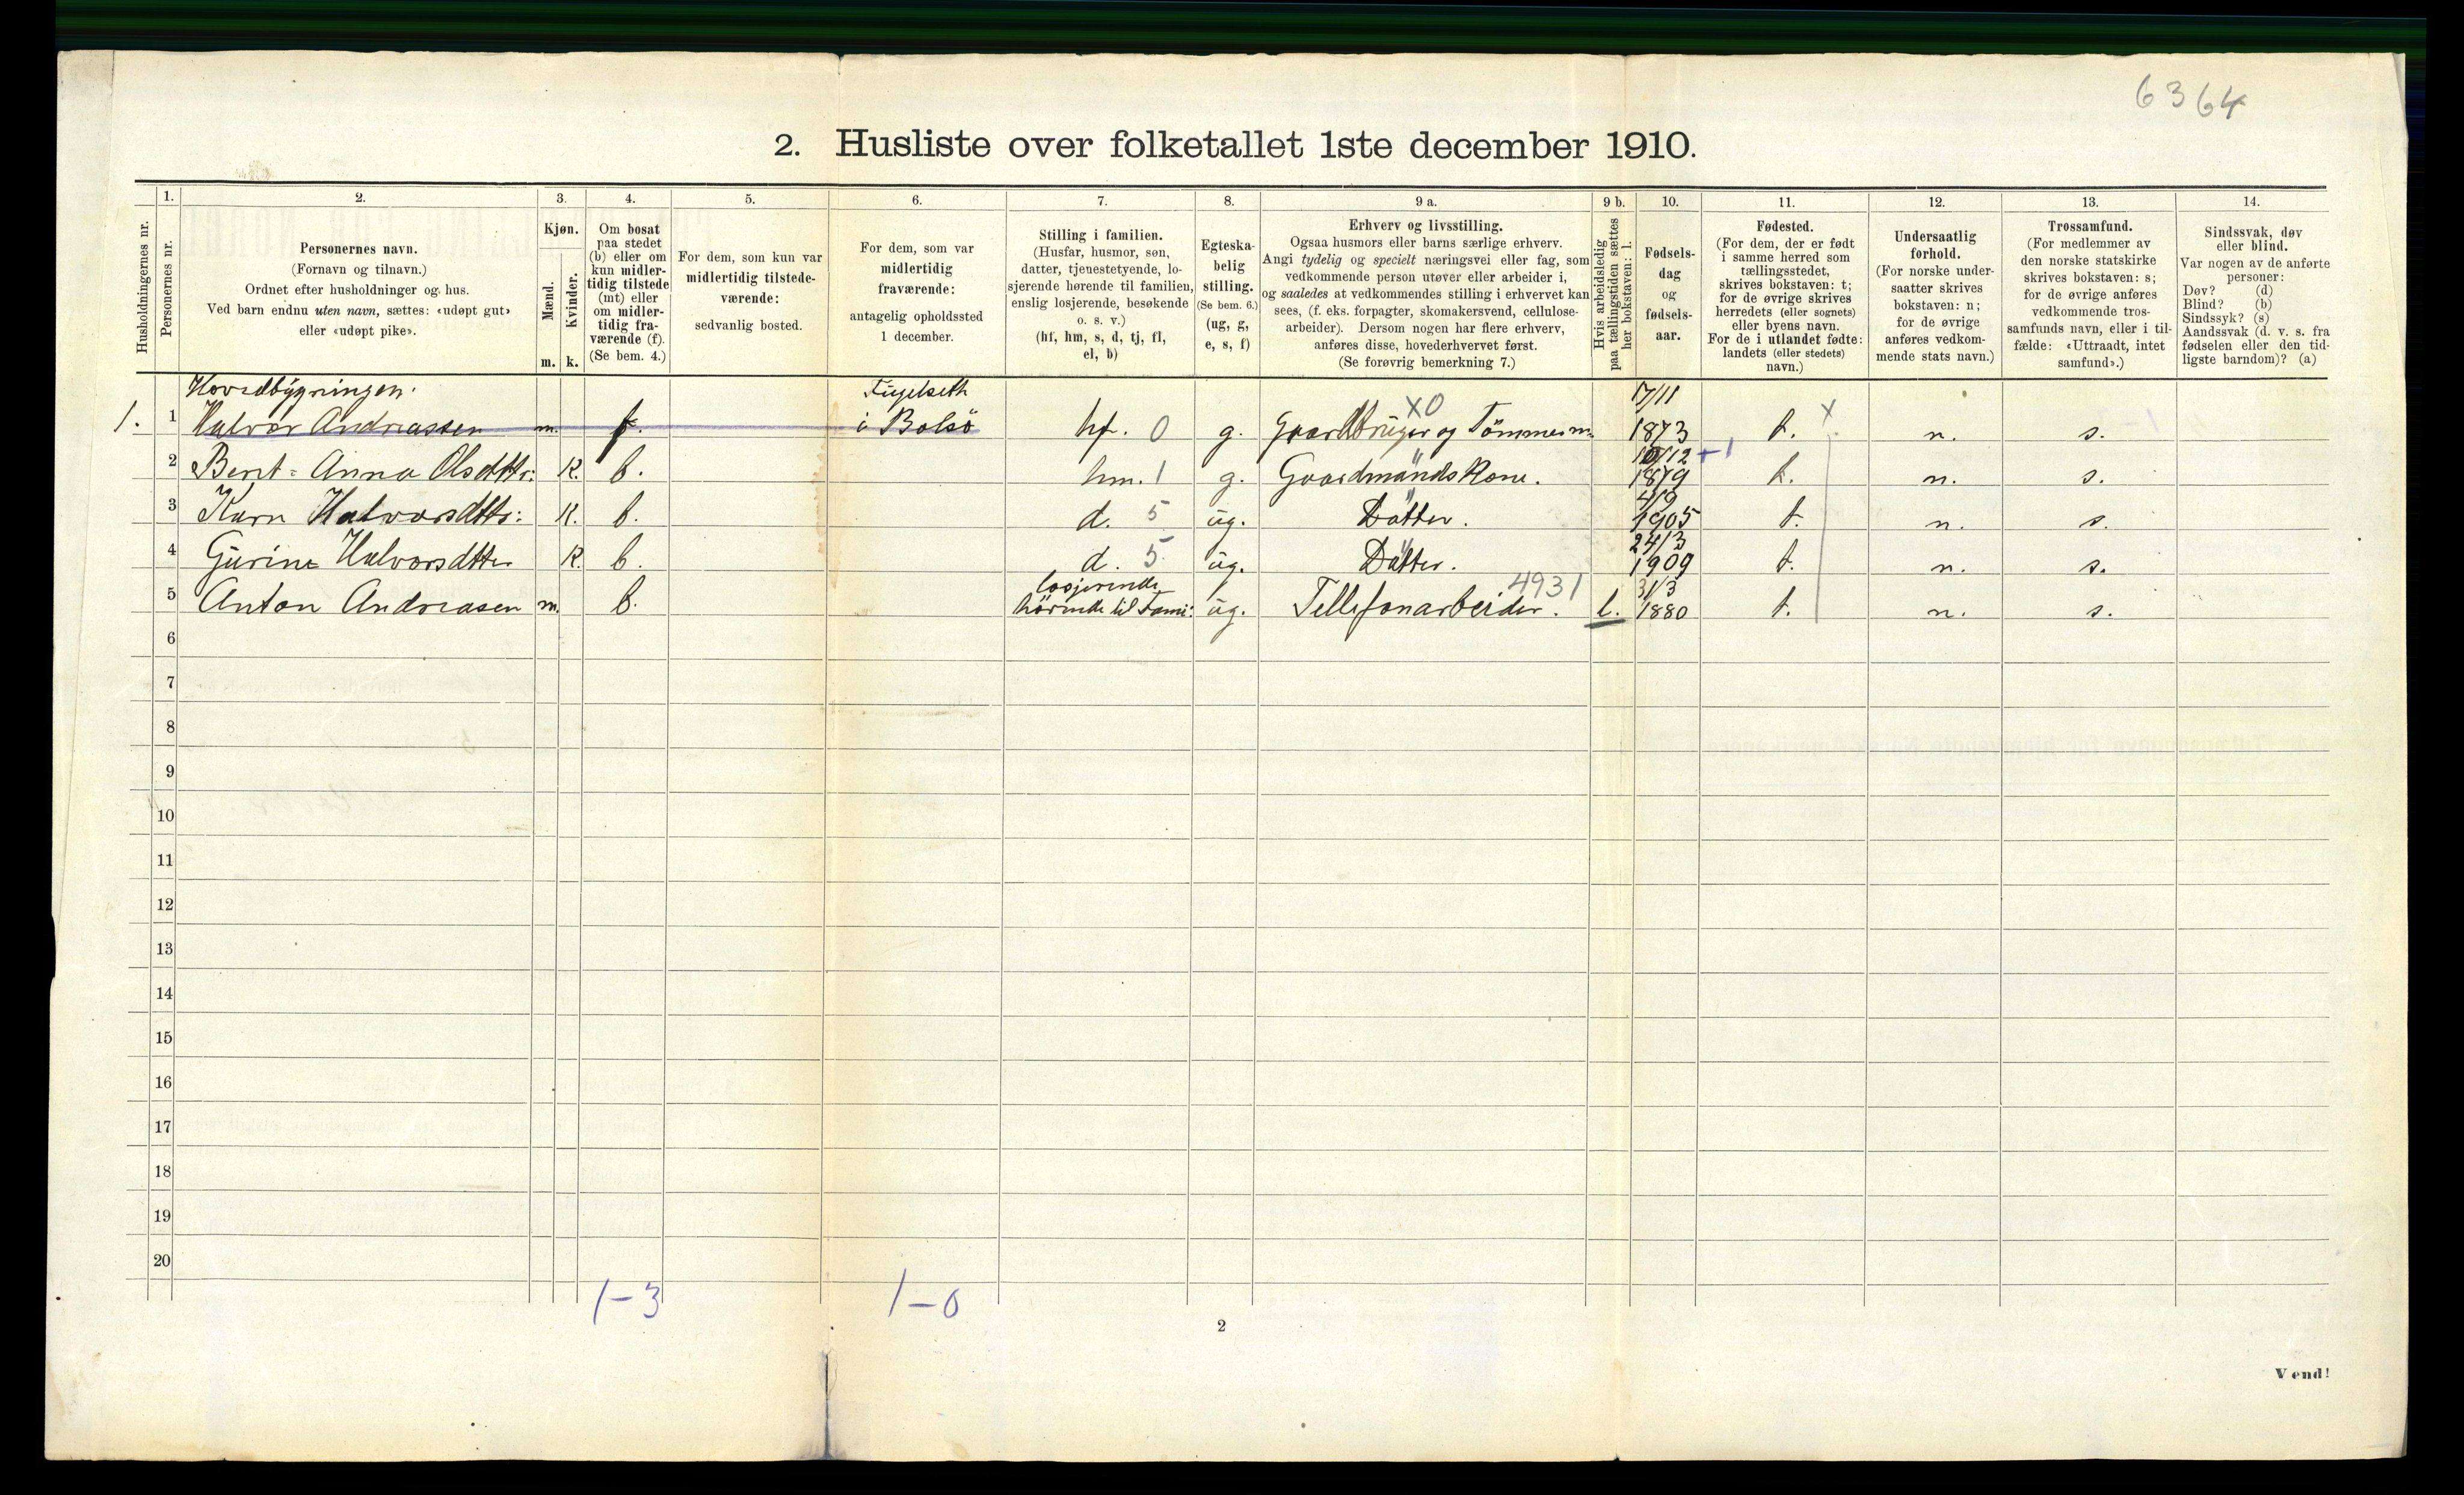 6364
2. Husliste over folketallet 1ste december 1910.
Husholdningernes nr.
1.
Personernes nr.
2.
Personernes navn.
(Fornavn og tilnavn.)
Ordnet efter husholdninger og hus.
Ved barn endnu uten navn, sættes: «udøpt gut»
eller «udøpt pike».
3.
Kjøn.
Mænd.
Kvinder.
m. k.
4.
Om bosat
paa stedet
(b) eller om
kun midler-
tidig tilstede
(mt) eller
om midler-
tidig fra-
værende (f).
(Se bem. 4.)
5.
For dem, som kun var
midlertidig tilstede-
værende:
sedvanlig bosted.
6.
For dem, som var
midlertidig
fraværende:
antagelig opholdssted
1 december.
7.
Stilling i familien.
(Husfar, husmor, søn,
datter, tjenestetyende, lo-
sjerende hørende til familien,
enslig losjerende, besøkende
o. s. v.)
(hf, hm, s, d, tj, fl,
el, b)
8.
Egteska-
belig
stilling.
(Se bem. 6.)
(ug, g,
e, s, f)
9 a.
Erhverv og livsstilling.
Ogsaa husmors eller barns særlige erhverv.
Angi tydelig og specielt næringsvei eller fag, som
vedkommende person utøver eller arbeider i,
og saaledes at vedkommendes stilling i erhvervet kan
sees, (f. eks. forpagter, skomakersvend, cellulose-
arbeider). Dersom nogen har flere erhverv,
anføres disse, hovederhvervet først.
(Se forøvrig bemerkning 7.)
9 b.
Hvis arbeidsledig
paa tællingstiden sættes
her bokstaven: l.
10.
Fødsels-
dag
og
fødsels-
aar.
11.
Fødested.
(For dem, der er født
i samme herred som
tællingsstedet,
skrives bokstaven: t;
for de øvrige skrives
herredets (eller sognets)
eller byens navn.
For de i utlandet fødte:
landets (eller stedets)
navn.)
12.
Undersaatlig
forhold.
(For norske under-
saatter skrives
bokstaven: n;
for de øvrige
anføres vedkom-
mende stats navn.)
13.
Trossamfund.
(For medlemmer av
den norske statskirke
skrives bokstaven: s;
for de øvrige anføres
vedkommende tros-
samfunds navn, eller i til-
fælde: «Uttraadt, intet
samfund».)
14.
Sindssvak, døv
eller blind.
Var nogen av de anførte
personer:
Døv? (d)
Blind? (b)
Sindssyk? (s)
Aandssvak (d. v. s. fra
fødselen eller den tid-
ligste barndom)? (a)
Hovedbygningen. Figelseth XO 17/11 x
1. 1 Halvor Andreassen m. f. i Bolsö hf. 0 g. Gaardbruger og Tömmerm. 1873 t. n. s.
10/12 +1
2 Berit-Anna Olsdttr: K. b. hm. 1 g. Gaardmands Kone. 1879 t. n. s.
4/9
3 Karn Halvorsdttr: K. b. d. 5 üg. Datter. 1905 t. n. s.
24/3
4 Gurine Halvorsdtter K. b. d. 5 üg. Datter. 1909 t. n. s.
losjerende 4931 31/3
5 Anton Andreasen m. b. hörende til Fami: üg. Tellefonarbeider. l. 1880 t. n. s.
6
7
8
9
10
11
12
13
14
15
16
17
18
19
20
1-3 1-0
2
Vend!